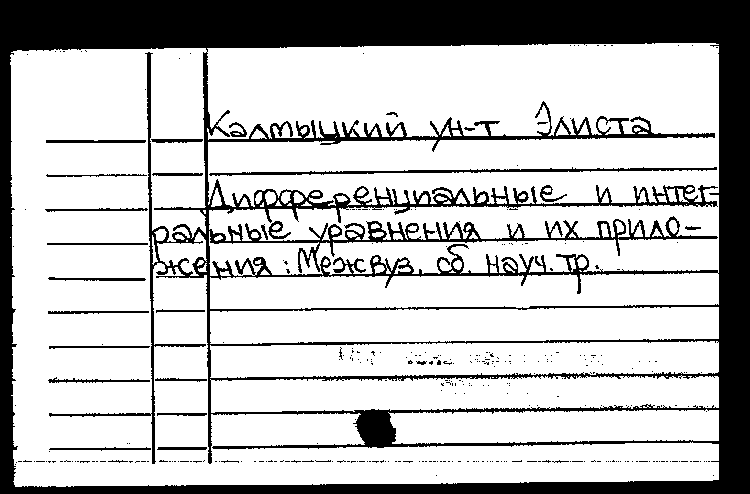 Калмыцкий ун-т. Элиста
Дифференциальные и интег-
ральные уравнения и их прило-
жения : Межвуз. сб. науч. тр.